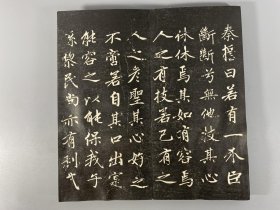 秦誓曰若有一介臣
斷斷兮無他技其心
休休焉其如有容焉
人之有技若己有之
人之彥聖其心好之
不啻若自其口出寔
能容之以能保我子
孫黎民尚亦有利哉